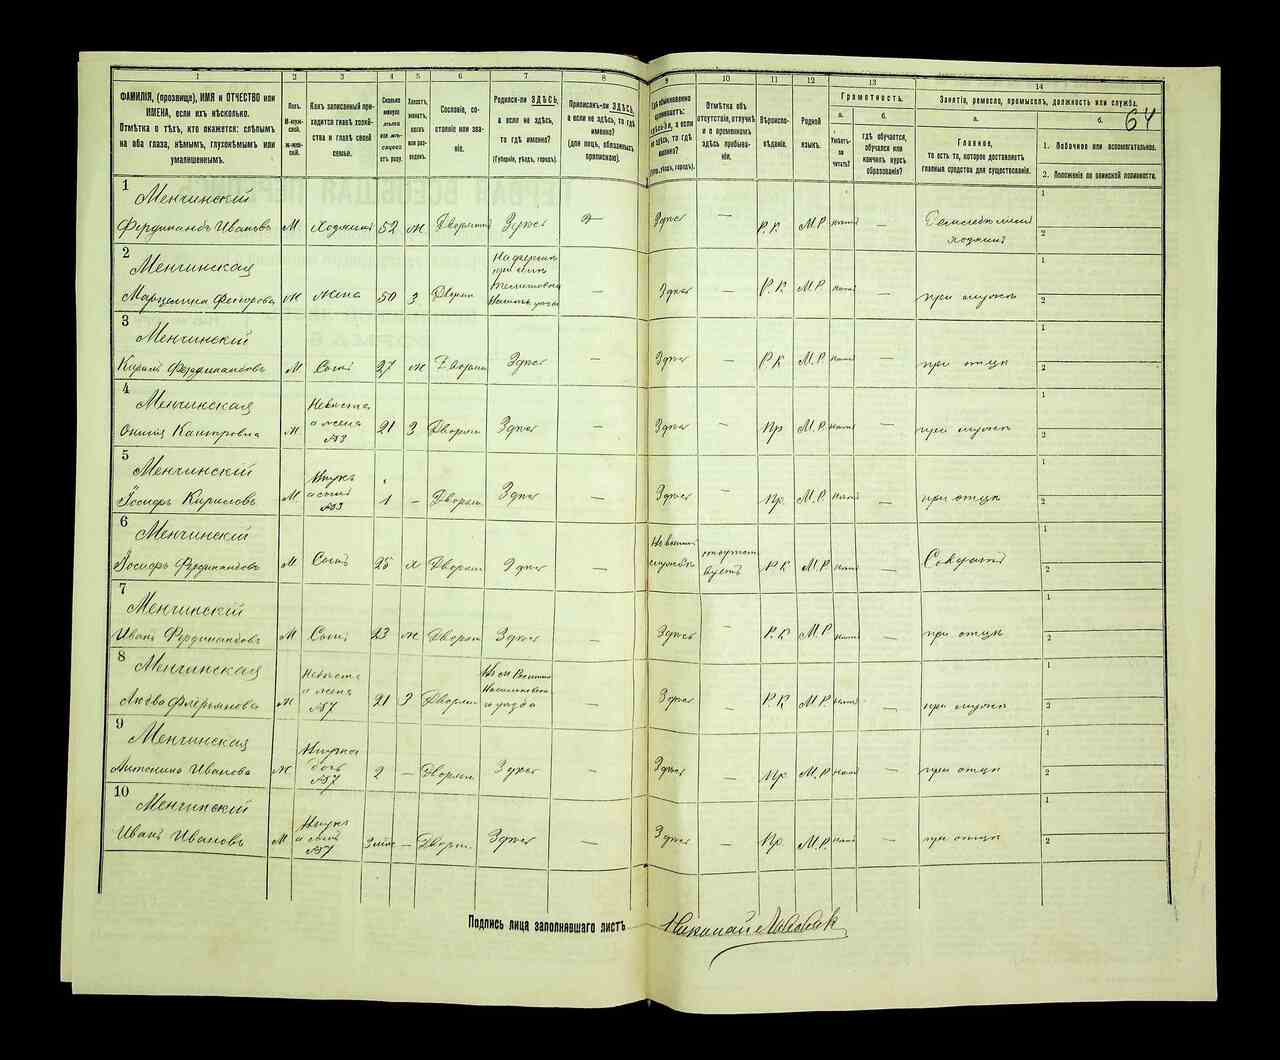 1 2 3 4 5 6 7 8 9 10 11 12 13 14
64
ФАМИЛІЯ, (прозвище), ИМЯ и ОТЧЕСТВО или
ИМЕНА, если ихъ нѣсколько.
Отмѣтка о тѣхъ, кто окажется: слѣпымъ
на оба глаза, нѣмымъ, глухонѣмымъ или
умалишеннымъ.
Полъ.
М-муж-
ской.
ж-жен-
скій.
Какъ записанный при-
ходится главѣ хозяй-
ства и главѣ своей
семьи.
Сколько
минуло
лѣтъ
или мѣ-
сяцевъ
отъ роду.
Холостъ,
женатъ,
вдовъ
или раз-
веденъ.
Сословіе, со-
стояніе или зва-
ніе.
Родился-ли ЗДѢСЬ,
а если не здѣсь,
то гдѣ именно?
(Губернія, уѣздъ, городъ).
Приписанъ-ли ЗДѢСЬ,
а если не здѣсь, то гдѣ
именно?
(для лицъ, обязанныхъ
припиской).
Гдѣ обыкновенно
проживаетъ:
здѣсь-ли, а если
не здѣсь, то гдѣ
именно?
(Губ., уѣздъ, городъ).
Отмѣтка объ
отсутствіи, отлучкѣ
и о временномъ
здѣсь пребыва-
ніи.
Вѣроиспо-
вѣданіе.
Родной
языкъ.
Грамотность.
а.
Умѣетъ-
ли
читать?
б.
гдѣ обучается,
обучался или
кончилъ курсъ
образованія?
Занятіе, ремесло, промыселъ, должность или служба.
а.
Главное,
то есть то, которое доставляетъ
главныя средства для существованія.
б.
1. Побочное или вспомогательное.
2. Положеніе по воинской повинности.
1 Менчинскій
Фердинандъ Ивановъ М Хозяинъ 52 ж Дворянинъ Здѣсь — Здѣсь — Р.К. М.Р. — хозяинъ 1 2
2 Менчинская
Марцелина Ж жена 50 З Дворян. — Здѣсь — Р.К М.Р — при мужѣ 1 2
3 Менчинскій
Кирилъ Фердинандовъ М Сынъ 27 ж Дворян. Здѣсь — Здѣсь — Р.К М.Р. — при отцѣ 1 2
4 Менчинская
Ж Невѣстка
а жена
№3 21 З Дворян. Здѣсь — Здѣсь — Пр М.Р. — при мужѣ 1 2
5 Менчинскій
Іосифъ Кириловъ М. Внукъ
а сынъ
№3 1 — Дворян. Здѣсь — Здѣсь — Пр. М.Р. — при отцѣ 1 2
6 Менчинскій
Іосифъ Фердинандовъ М Сынъ 25 Х Дворян. Здѣсь — Р.К М.Р — Солдатъ 1 2
7 Менчинскій
Иванъ Фердинандовъ М Сынъ 23 ж Дворян. Здѣсь — Здѣсь — Р.К М.Р — при отцѣ 1 2
8 Менчинская
Ж Невѣстка
а жена
№7 21 З Дворян. уѣзда — Здѣсь — Р.К. М.Р — при мужѣ 1 2
9 Менчинская
Антонина Иванова Ж Внучка
дочь
№7 2 — Дворян. Здѣсь — Здѣсь — Пр. М.Р — при отцѣ 1 2
10 Менчинскій
Иванъ Ивановъ М Внукъ
а сынъ
№7 — Дворян. Здѣсь — Здѣсь — Пр. М.Р — при отцѣ 1 2
Подпись лица заполнявшаго листъ Николай